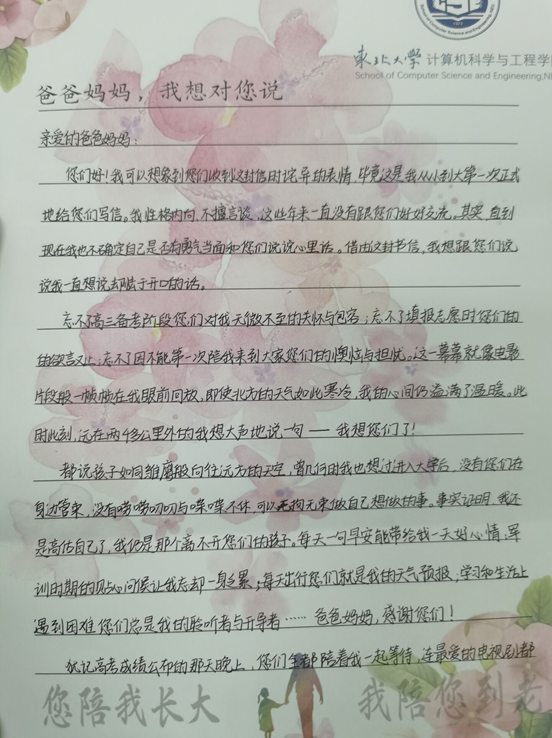 东北大学 计算机科学与工程学院
School of Computer Science and Engineering,NE
爸爸妈妈，我想对您说
亲爱的爸爸妈妈：
您们好！我可以想象到您们收到这封信时诧异的表情，毕竟这是我从小到大第一次正式
地给您们写信。我性格内向，不擅言谈，这些年来一直没有跟您们好好交流。其实，直到
现在我也不确定自己是否有勇气当面和您们说说心里话。借由这封书信，我想跟您们说
说我一直想说却羞于开口的话。
忘不了高三备考阶段您们对我无微不至的关怀与包容；忘不了填报志愿时您们的
的欲言又止；忘不了因不能第一次陪我来到大学您们的懊恼与担忧。这一幕幕就像电影
片段般一帧帧在我眼前回放，即使北方的天气如此寒冷，我的心间仍溢满了温暖。此
时此刻，远在两千多公里外的我想大声地说一句——我想您们了！
都说孩子如同雏鹰般向往远方的天空，曾几何时我也想过进入大学后，没有您们在
身边管束，没有唠唠叨叨与喋喋不休，可以无拘无束做自己想做的事。事实证明，我还
是高估自己了，我仍是那个离不开您们的孩子。每天一句早安能带给我一天好心情；军
训时期的贴心问候让我忘却一身之累；每天出行您们就是我的天气预报，学习和生活上
遇到困难，您们总是我的聆听者与开导者……爸爸妈妈，感谢您们！
犹记高考成绩公布的那天晚上，您们全都陪着我一起等待，连最爱的电视剧都
您陪我长大
我陪您到老